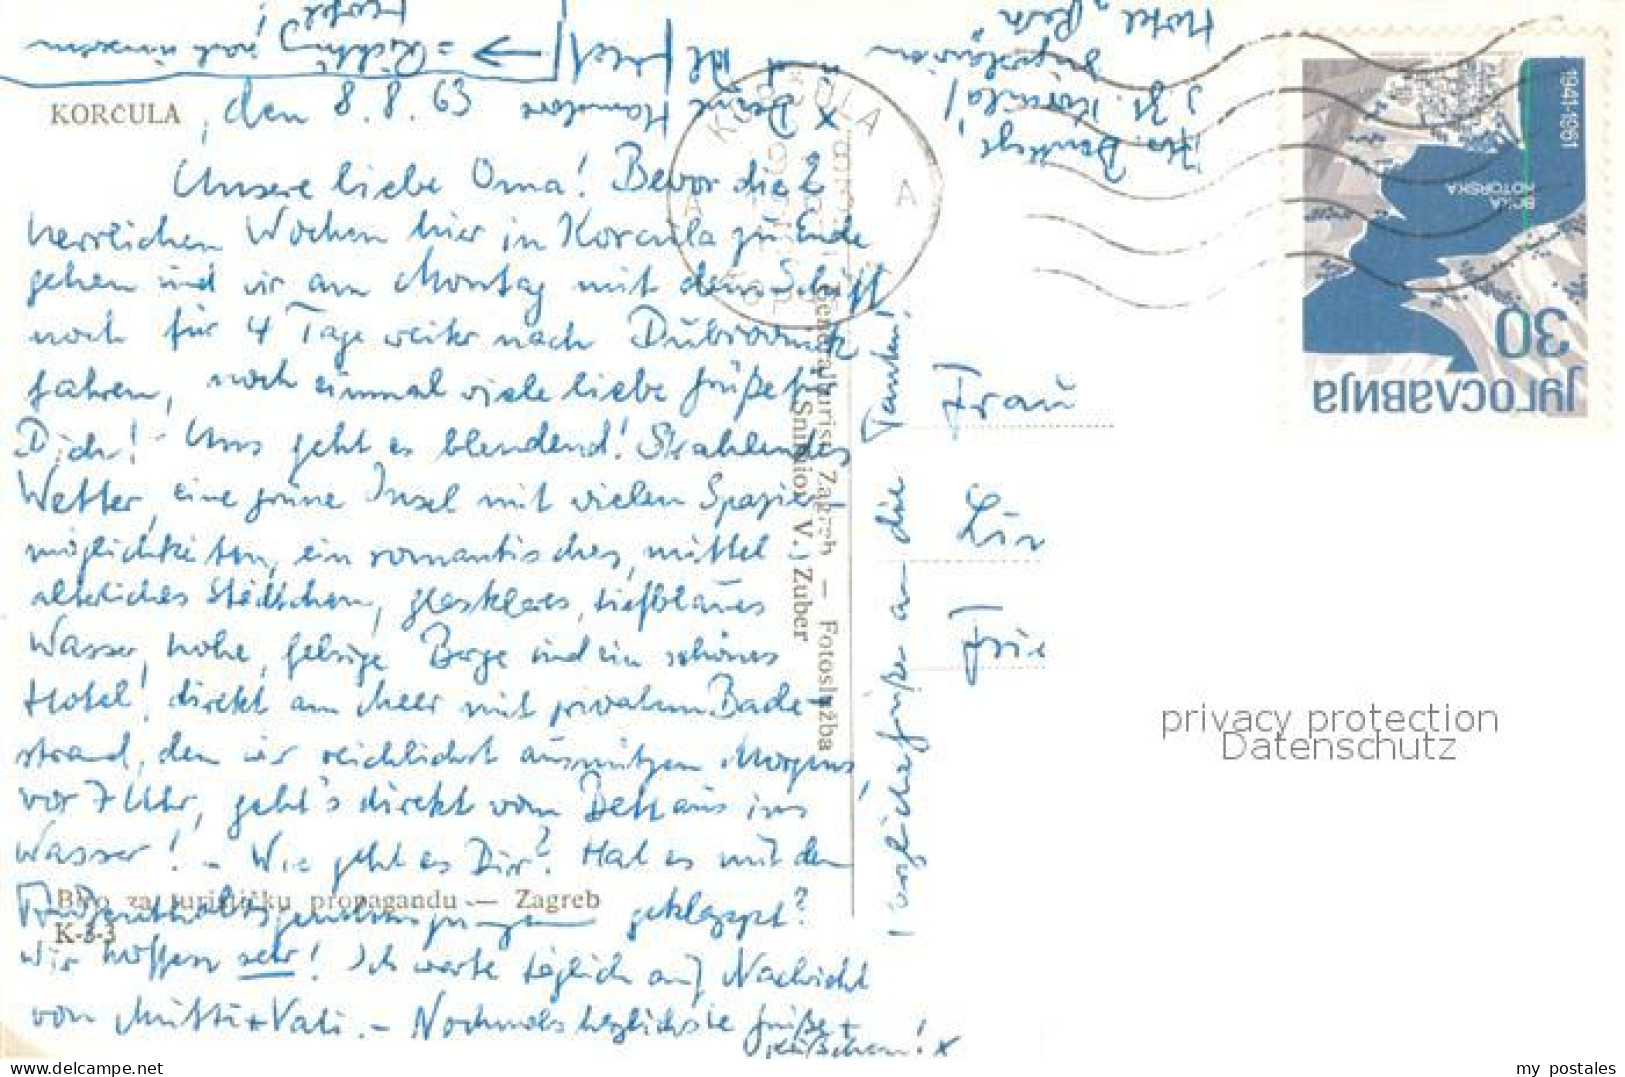 KORCULA, den 8.8.63
Unsere liebe Oma! Bevor die 2
herrlichen Wochen hier in Korcula zu Ende
gehen und wir am Montag mit dem Schiff
noch für 4 Tage weiter nach Dubrovnik
fahren, noch einmal viele liebe Grüße für
Dich! Uns geht es blendend! Strahlendes
Wetter, eine grüne Insel mit vielen Spazier
möglichkeiten, ein romantisches, mittel
alterliches Städtchen, glasklares, tiefblaues
Wasser, hohe, felsige Berge und ein schönes
Hotel, direkt am Meer mit privatem Bade-
strand, den wir reichlichst ausnützen. Morgens,
vor 7 Uhr, geht's direkt vom Bett aus ins
Wasser! - Wie geht es Dir? Hat es mit der
geklappt?
Wir hoffen sehr! Ich warte täglich auf Nachricht
von Mutti + Vati. - Nochmals herzlichste Grüße +
Küßchen! x
x Deine Hannelore
und
Herzliche Grüße an die Tanten!
Abs.
Z. Zt. Korcula/
Jugoslavien
Hotel "
Frau
Lin
Frie
Biro za turističku propagandu — Zagreb
K-3-3
Generalturist Zagreb — Fotoslužba
Snimio: V. Zuber
KORČULA
A A
1941-1961
BOKA
KOTORSKA
30
ЈУГОСЛАВИЈА
privacy protection
Datenschutz
www.delcampe.net
my_postales